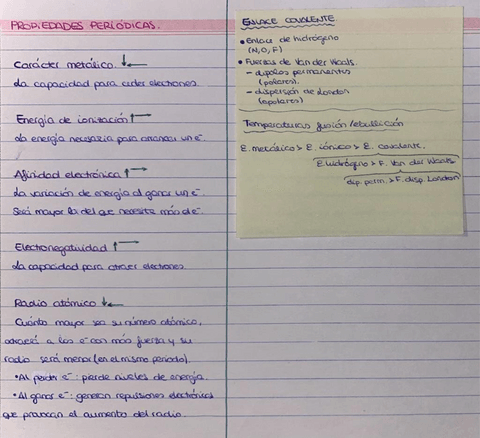 PROPIEDADES PERIÓDICAS.
Carácter metálico ↓←
La capacidad para ceder electrones.
Energía de ionización ↑→
La energía necesaria para arrancar un e⁻.
Afinidad electrónica ↑→
La variación de energía al ganar un e⁻.
Será mayor la del que necesite más de e⁻.
Electronegatividad ↑→
La capacidad para atraer electrones.
Radio atómico ↓←
Cuánto mayor sea su número atómico,
atraerá a los e⁻ con más fuerza y su
radio será menor (en el mismo periodo).
• Al perder e⁻: pierde niveles de energía.
• Al ganar e⁻: generan repulsiones electrónicas
que provocan el aumento del radio.
ENLACE COVALENTE.
• Enlace de hidrógeno
(N, O, F)
• Fuerzas de Van der Waals.
- dipolos permanentes
(polares).
- dispersión de London
(apolares)
Temperaturas fusión/ebullición
E. metálico > E. iónico > E. covalente.
E. hidrógeno > F. Van der Waals
dip. perm. > F. disp. London